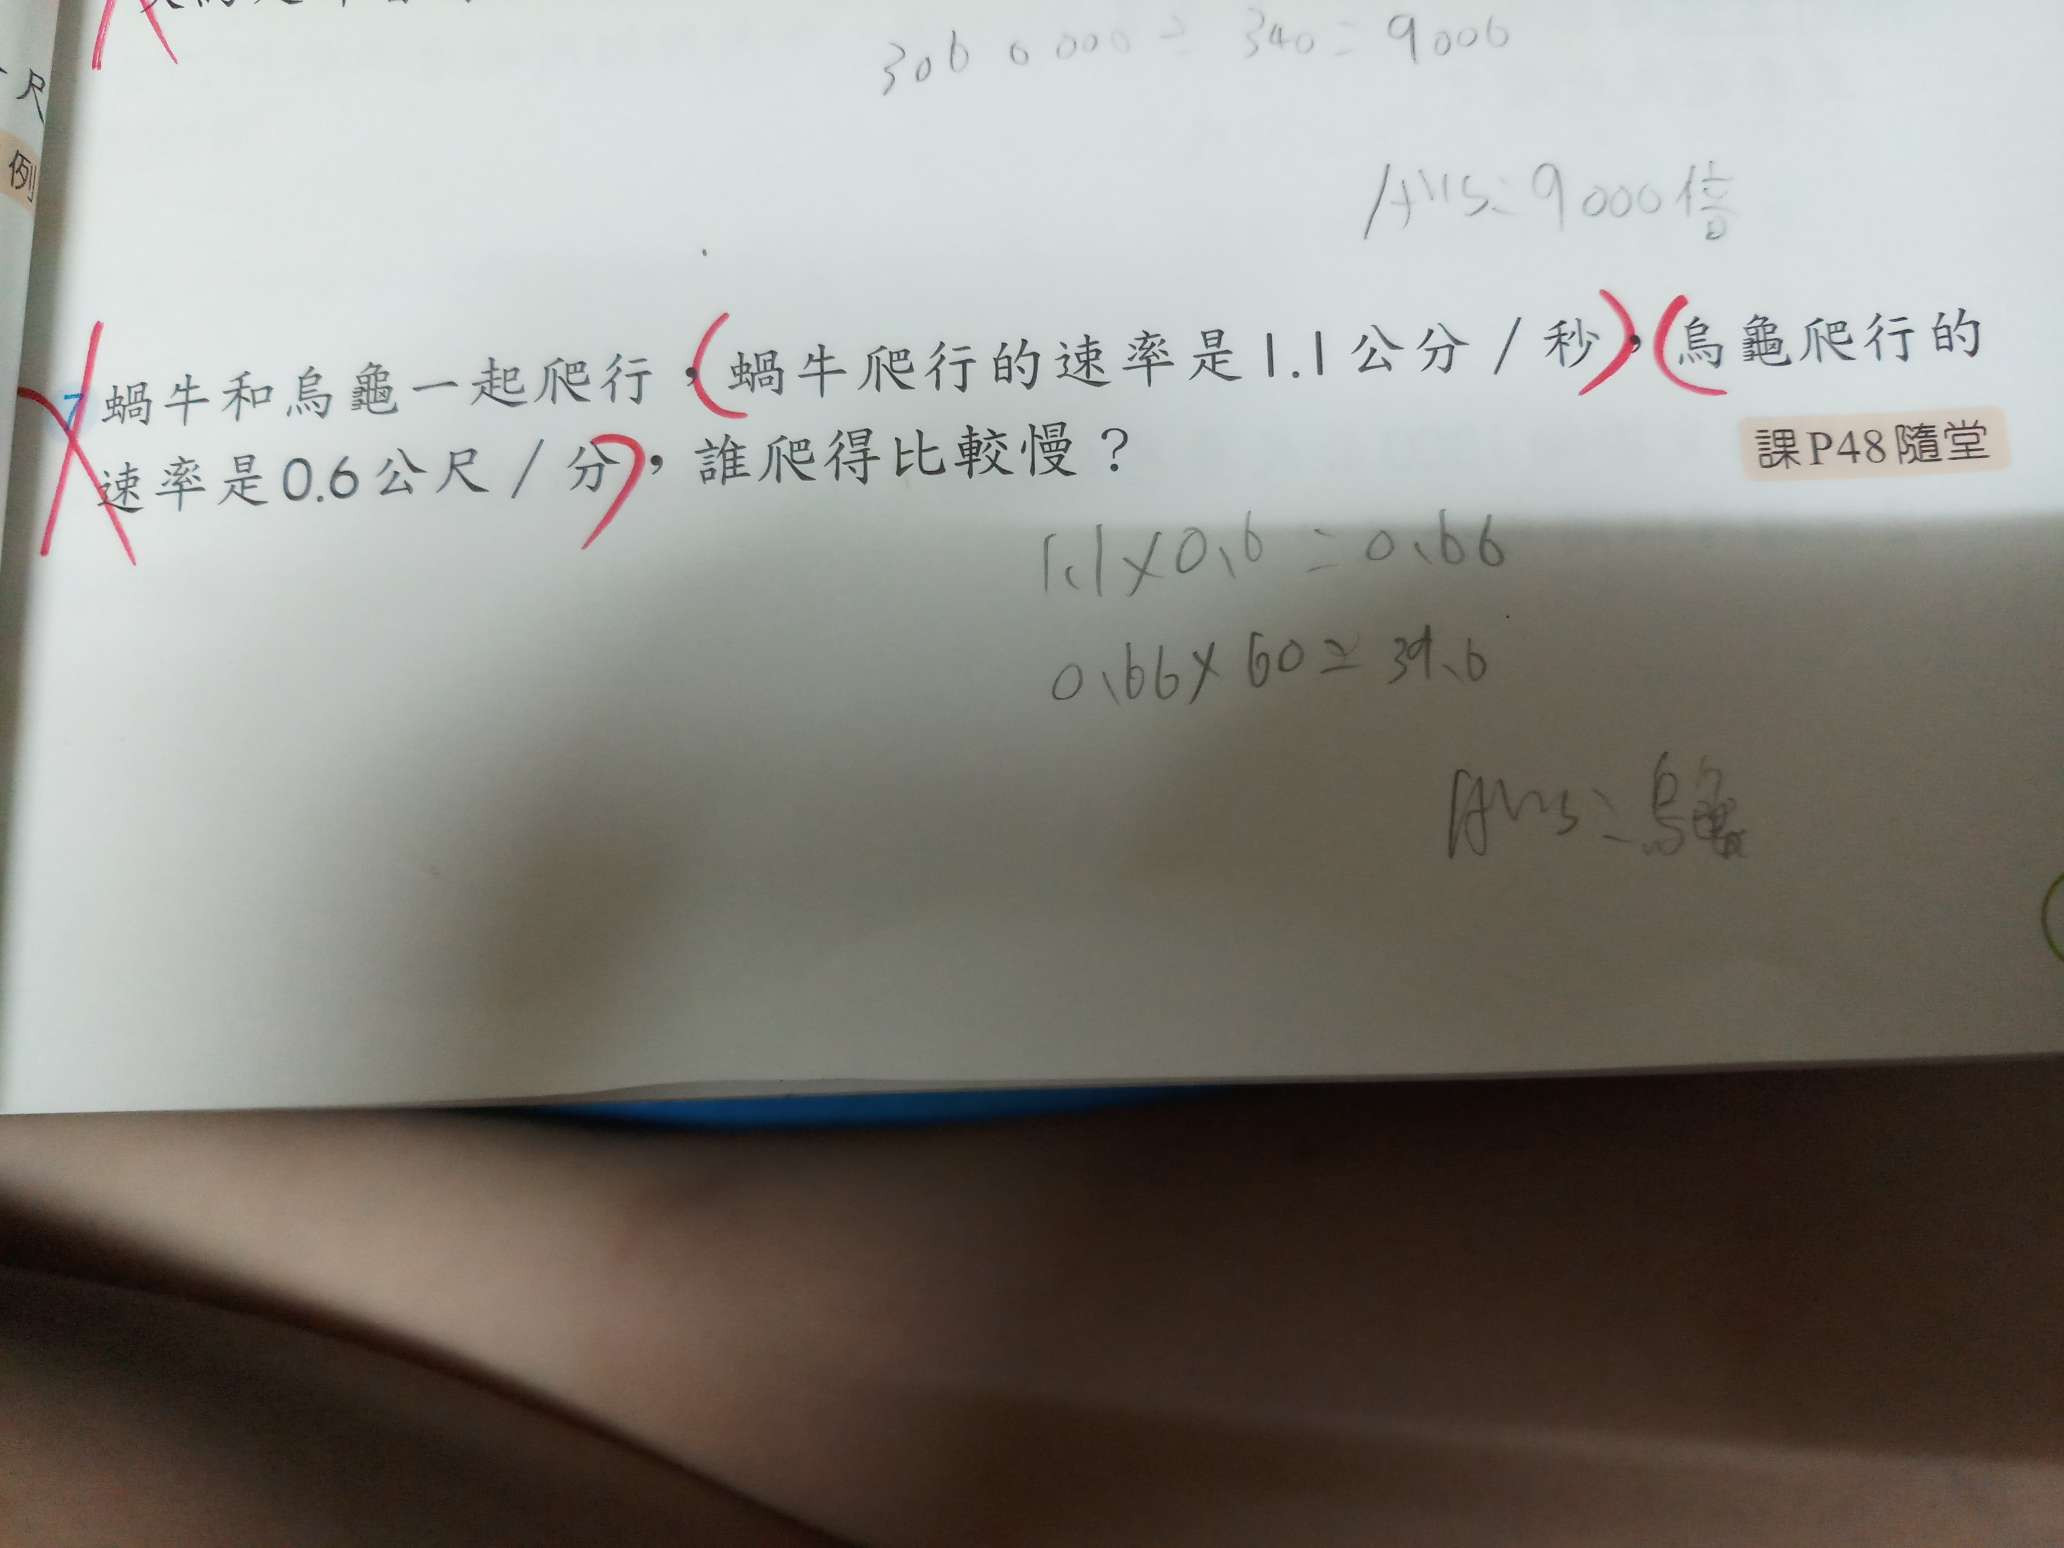 尺
例
306 0 000 ÷ 340 = 9000
Ans: 9000倍
7 蝸牛和烏龜一起爬行，(蝸牛爬行的速率是1.1公分／秒)，(烏龜爬行的
速率是0.6公尺／分)，誰爬得比較慢？
課P48隨堂
1.1×0.6=0.66
0.66×60=39.6
Ans:烏龜